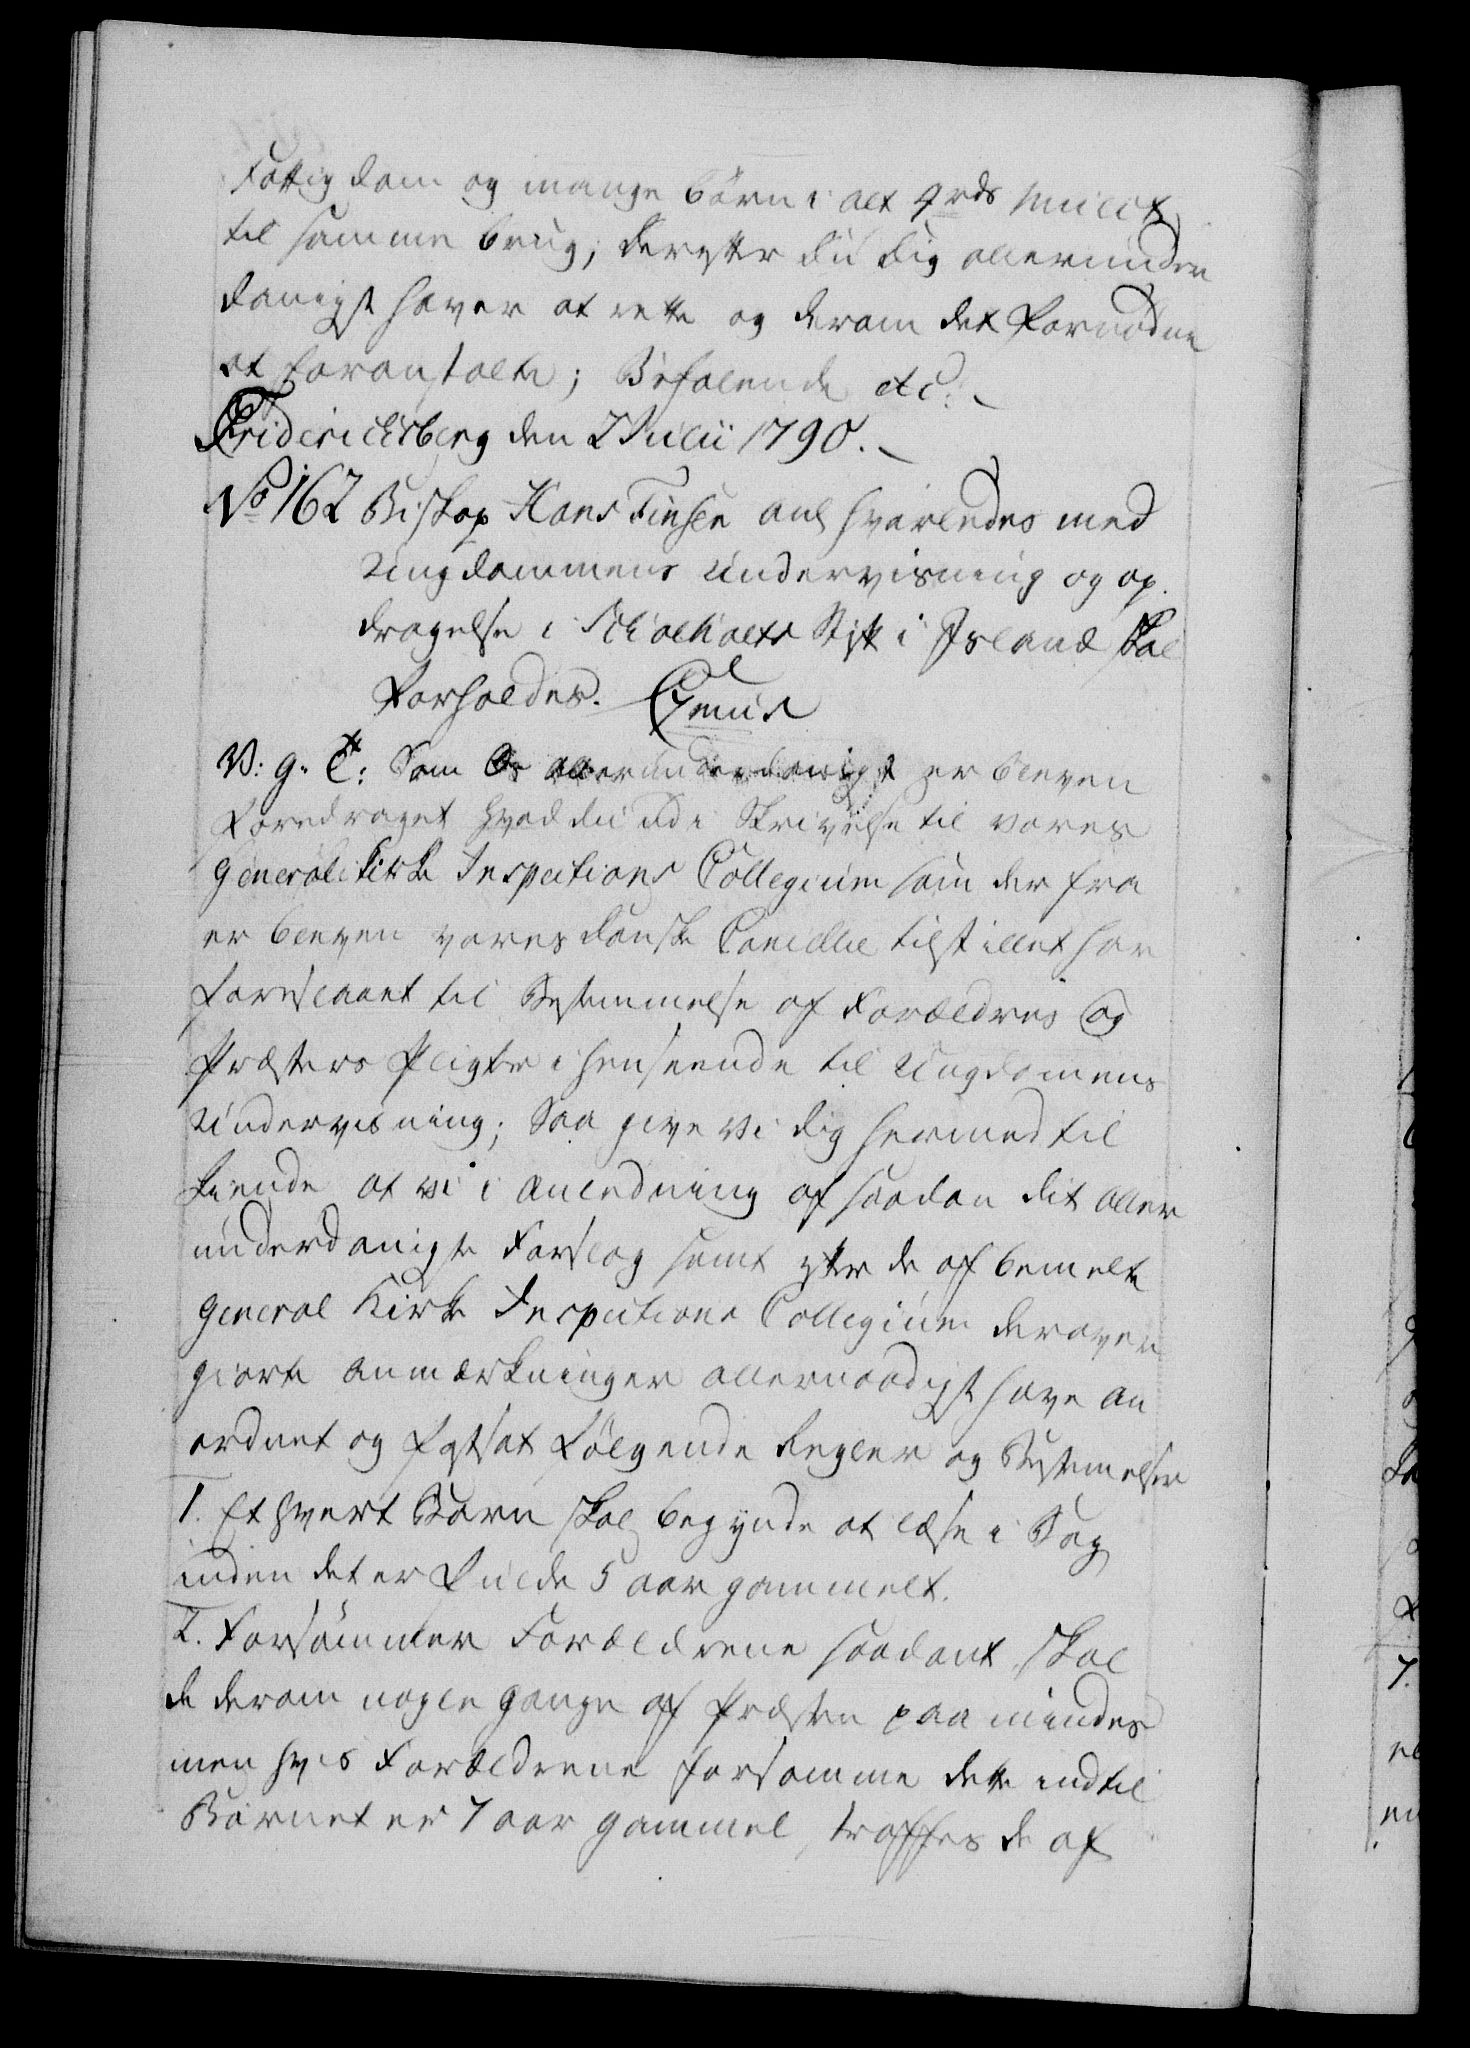 Fattigdom og mange børn i alt 4 rds Mulct
til samme brug; derefter du dig allerunder
danigst haver at rette og derom det Fornødne
at foranstalte; Befalende etc:
Friderichsberg den 2 Julii 1790.
No 162 Biskop Hans Finsen anl hvorledes med
Ungdommens Undervisning og op
dragelse i Schalholts Stift i Island skal
Forholdes.
V: g. T: Som Os allerunderdanigst er bleven
Foredraget hvad du udi Skrivelse til vores
General Kirke Inspections Collegium som der fra
er bleven vores danske Cancellie tilstillet har
foreslaaet til Bestemmelse af Forældres og
Præsters Pligter i henseende til Ungdomens
Undervisning; Saa give vi dig hermed til
kiende at vi i anledning af saadan dit aller
underdanigste Forslag samt efter de af bemelte
General Kirke Inspections Collegium derover
giorte anmærkninger allernaadigst have an
ordnet og fastsat Følgende Regler og Bestemelser
1. Et hvert Barn skal begynde at læse i Bog
inden det er Fulde 5 aar gammelt.
2. Forsømmer Forældrene saadant, skal
de derom nogle gange af Præsten paa mindes
men hvis Forældrene forsømme dette indtil
Barnet er 7 aar gammel, straffes de af